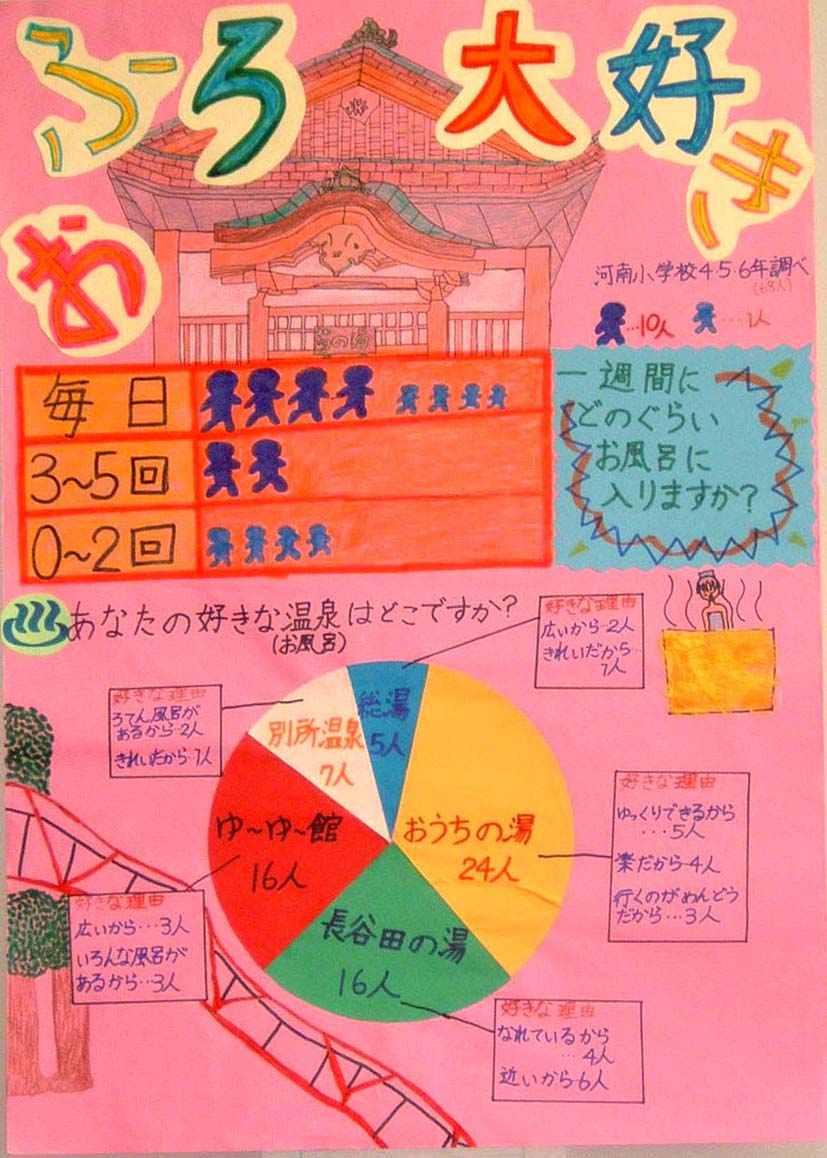 おふろ大好き
河南小学校4・5・6年調べ
(68人)
…10人 …1人
毎日
3〜5回
0〜2回
一週間に
どのぐらい
お風呂に
入りますか?
あなたの好きな温泉はどこですか?
(お風呂)
好きな理由
広いから…2人
きれいだから…
1人
好きな理由
ろてん風呂が
あるから…2人
きれいだから…1人
総湯
5人
別所温泉
7人
おうちの湯
24人
ゆ〜ゆ〜館
16人
長谷田の湯
16人
好きな理由
ゆっくりできるから
…5人
楽だから…4人
行くのがめんどう
だから…3人
好きな理由
広いから…3人
いろんな風呂が
あるから…3人
好きな理由
なれているから
…4人
近いから…6人